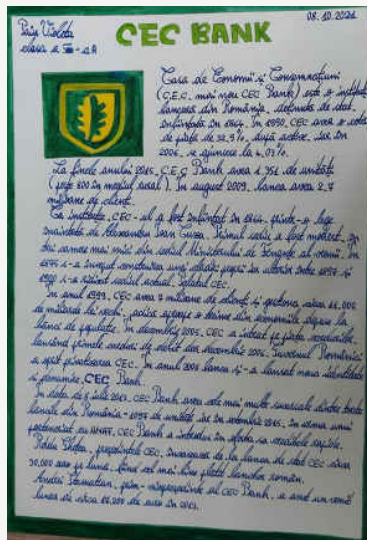 Paiș Violeta
08.10.2021
clasa a XII-a A
CEC BANK
Casa de Economii și Consemnațiuni
(C.E.C., mai nou CEC Bank) este o instituție
bancară din România, deținută de stat,
înființată în 1864. În 1990, CEC avea o cotă
de piață de 32,9%, după active, iar în
2006, a ajuns la 4,03%.
La finele anului 2015, C.E.C. Bank avea 1.351 de unități
(peste 800 în mediul rural). În august 2009, banca avea 2,7
milioane de clienți.
Ca instituție, CEC-ul a fost înființat în 1864, printr-o lege
înaintată de Alexandru Ioan Cuza. Primul sediu a fost modest, în
trei camere mai mici din sediul Ministerului de Finanțe al vremii. În
1875 s-a început construirea unui sediu propriu iar ulterior între 1897 și
1900 s-a ridicat sediul actual, Palatul CEC.
În anul 1999, CEC avea 7 milioane de clienți și gestiona circa 11.000
de miliarde lei vechi, adică aproape o treime din economiile depuse la
bănci de populație. În decembrie 2005, CEC a intrat pe piața cardurilor,
lansând primele carduri de debit. În decembrie 2006, Guvernul României
a oprit privatizarea CEC. În anul 2008 banca și-a lansat noua identitate
și denumire, CEC Bank.
În data de iulie 2013, CEC Bank avea cele mai multe sucursale dintre toate
băncile din România - 1097 de unități iar în octombrie 2015, în urma unui
parteneriat cu CEC Bank a introdus în oferta sa creditele
Radu Ghețea, președintele CEC, încasează de la banca de stat CEC circa
30.000 euro pe lună, fiind cel mai bine plătit bancher român.
Andrei Stamatian, prim-vicepreședinte al CEC Bank, a avut un venit
lunar de circa de euro în